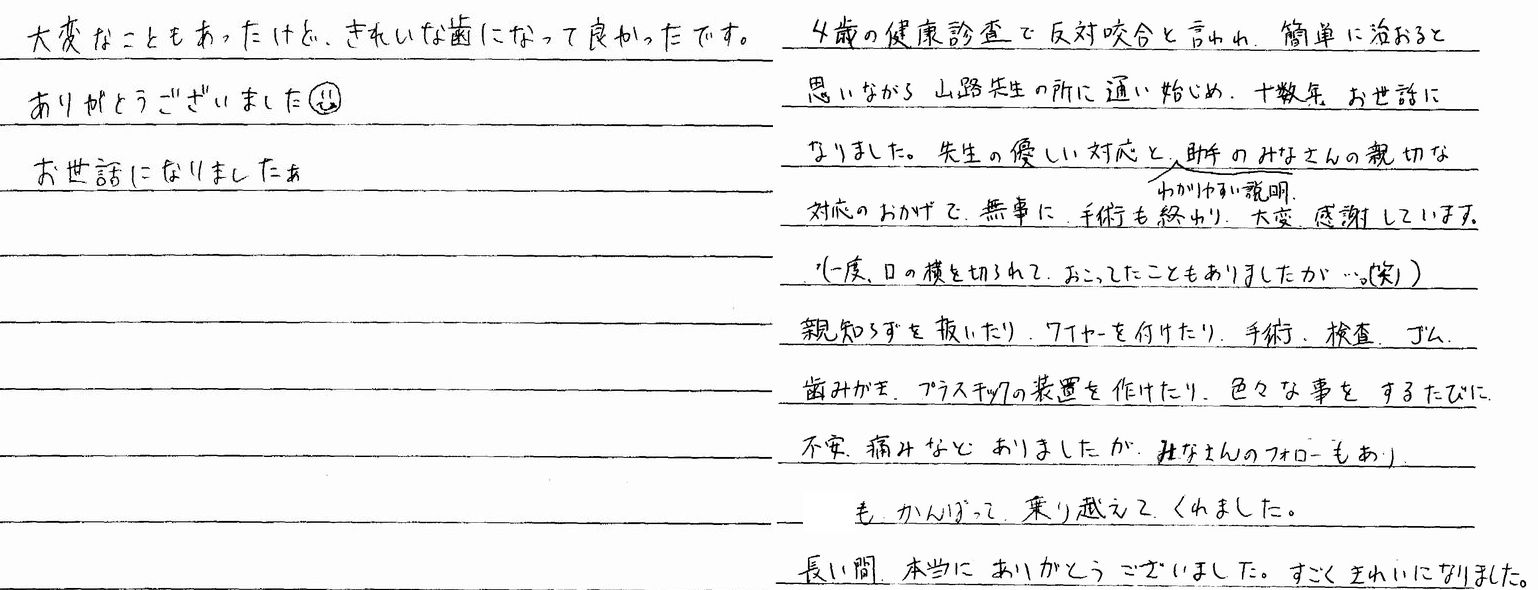 大変なこともあったけど、きれいな歯になって良かったです。
ありがとうございました
お世話になりましたぁ
4歳の健康診査で反対咬合と言われ、簡単に治おると
思いながら山路先生の所に通い始じめ、十数年、お世話に
なりました。先生の優しい対応と、助手のみなさんの親切な
わかりやすい説明、
対応のおかげで、無事に、手術も終わり、大変、感謝しています。
(一度、口の横を切られて、おこってたこともありましたが…。(笑))
親知らずを抜いたり、ワイヤーを付けたり、手術、検査、ゴム、
歯みがき、プラスチックの装置を作けたり、色々な事をするたびに、
不安、痛みなどありましたが、みなさんのフォローもあり、
も、かんばって、乗り越えて、くれました。
長い間、本当にありがとうございました。すごくきれいになりました。